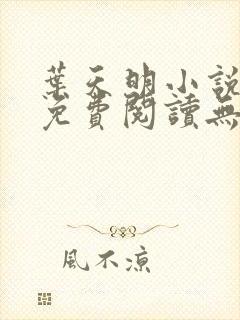 葉天明小說
免費閱讀無
風不涼